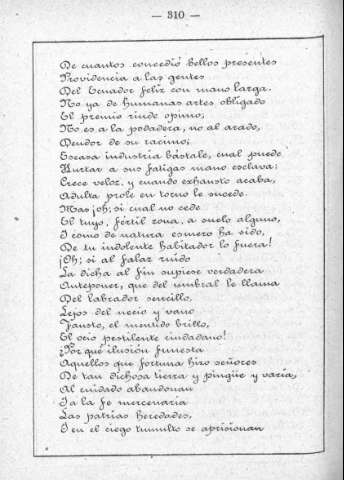 — 310 —
De cuantos concedió bellos presentes
Providencia a las gentes
Del Ecuador feliz con mano larga.
No ya de humanas artes obligado
El premio rinde opimo;
No es a la podadera, no al arado,
Deudor de su racimo;
Escasa industria bástale, cual puede
Hurtar a sus fatigas mano esclava:
Crece veloz, y cuando exhausto acaba,
Adulta prole en torno le sucede.
Mas ¡oh; si cual no cede
El tuyo, fértil zona, a suelo alguno,
I como de natura esmero ha sido,
De tu indolente habitador lo fuera!
¡Oh; si al falaz ruido
La dicha al fin supiese verdadera
Anteponer, que del umbral le llama
Del labrador sencillo,
Lejos del necio y vano
Fausto, el mentido brillo,
El ocio pestilente ciudadano!
¿Por qué ilusión funesta
Aquellos que fortuna hizo señores
De tan dichosa tierra y pingüe y varia,
Al cuidado abandonan
I a la fe mercenaria
Las patrias heredades,
I en el ciego tumulto se aprisionan